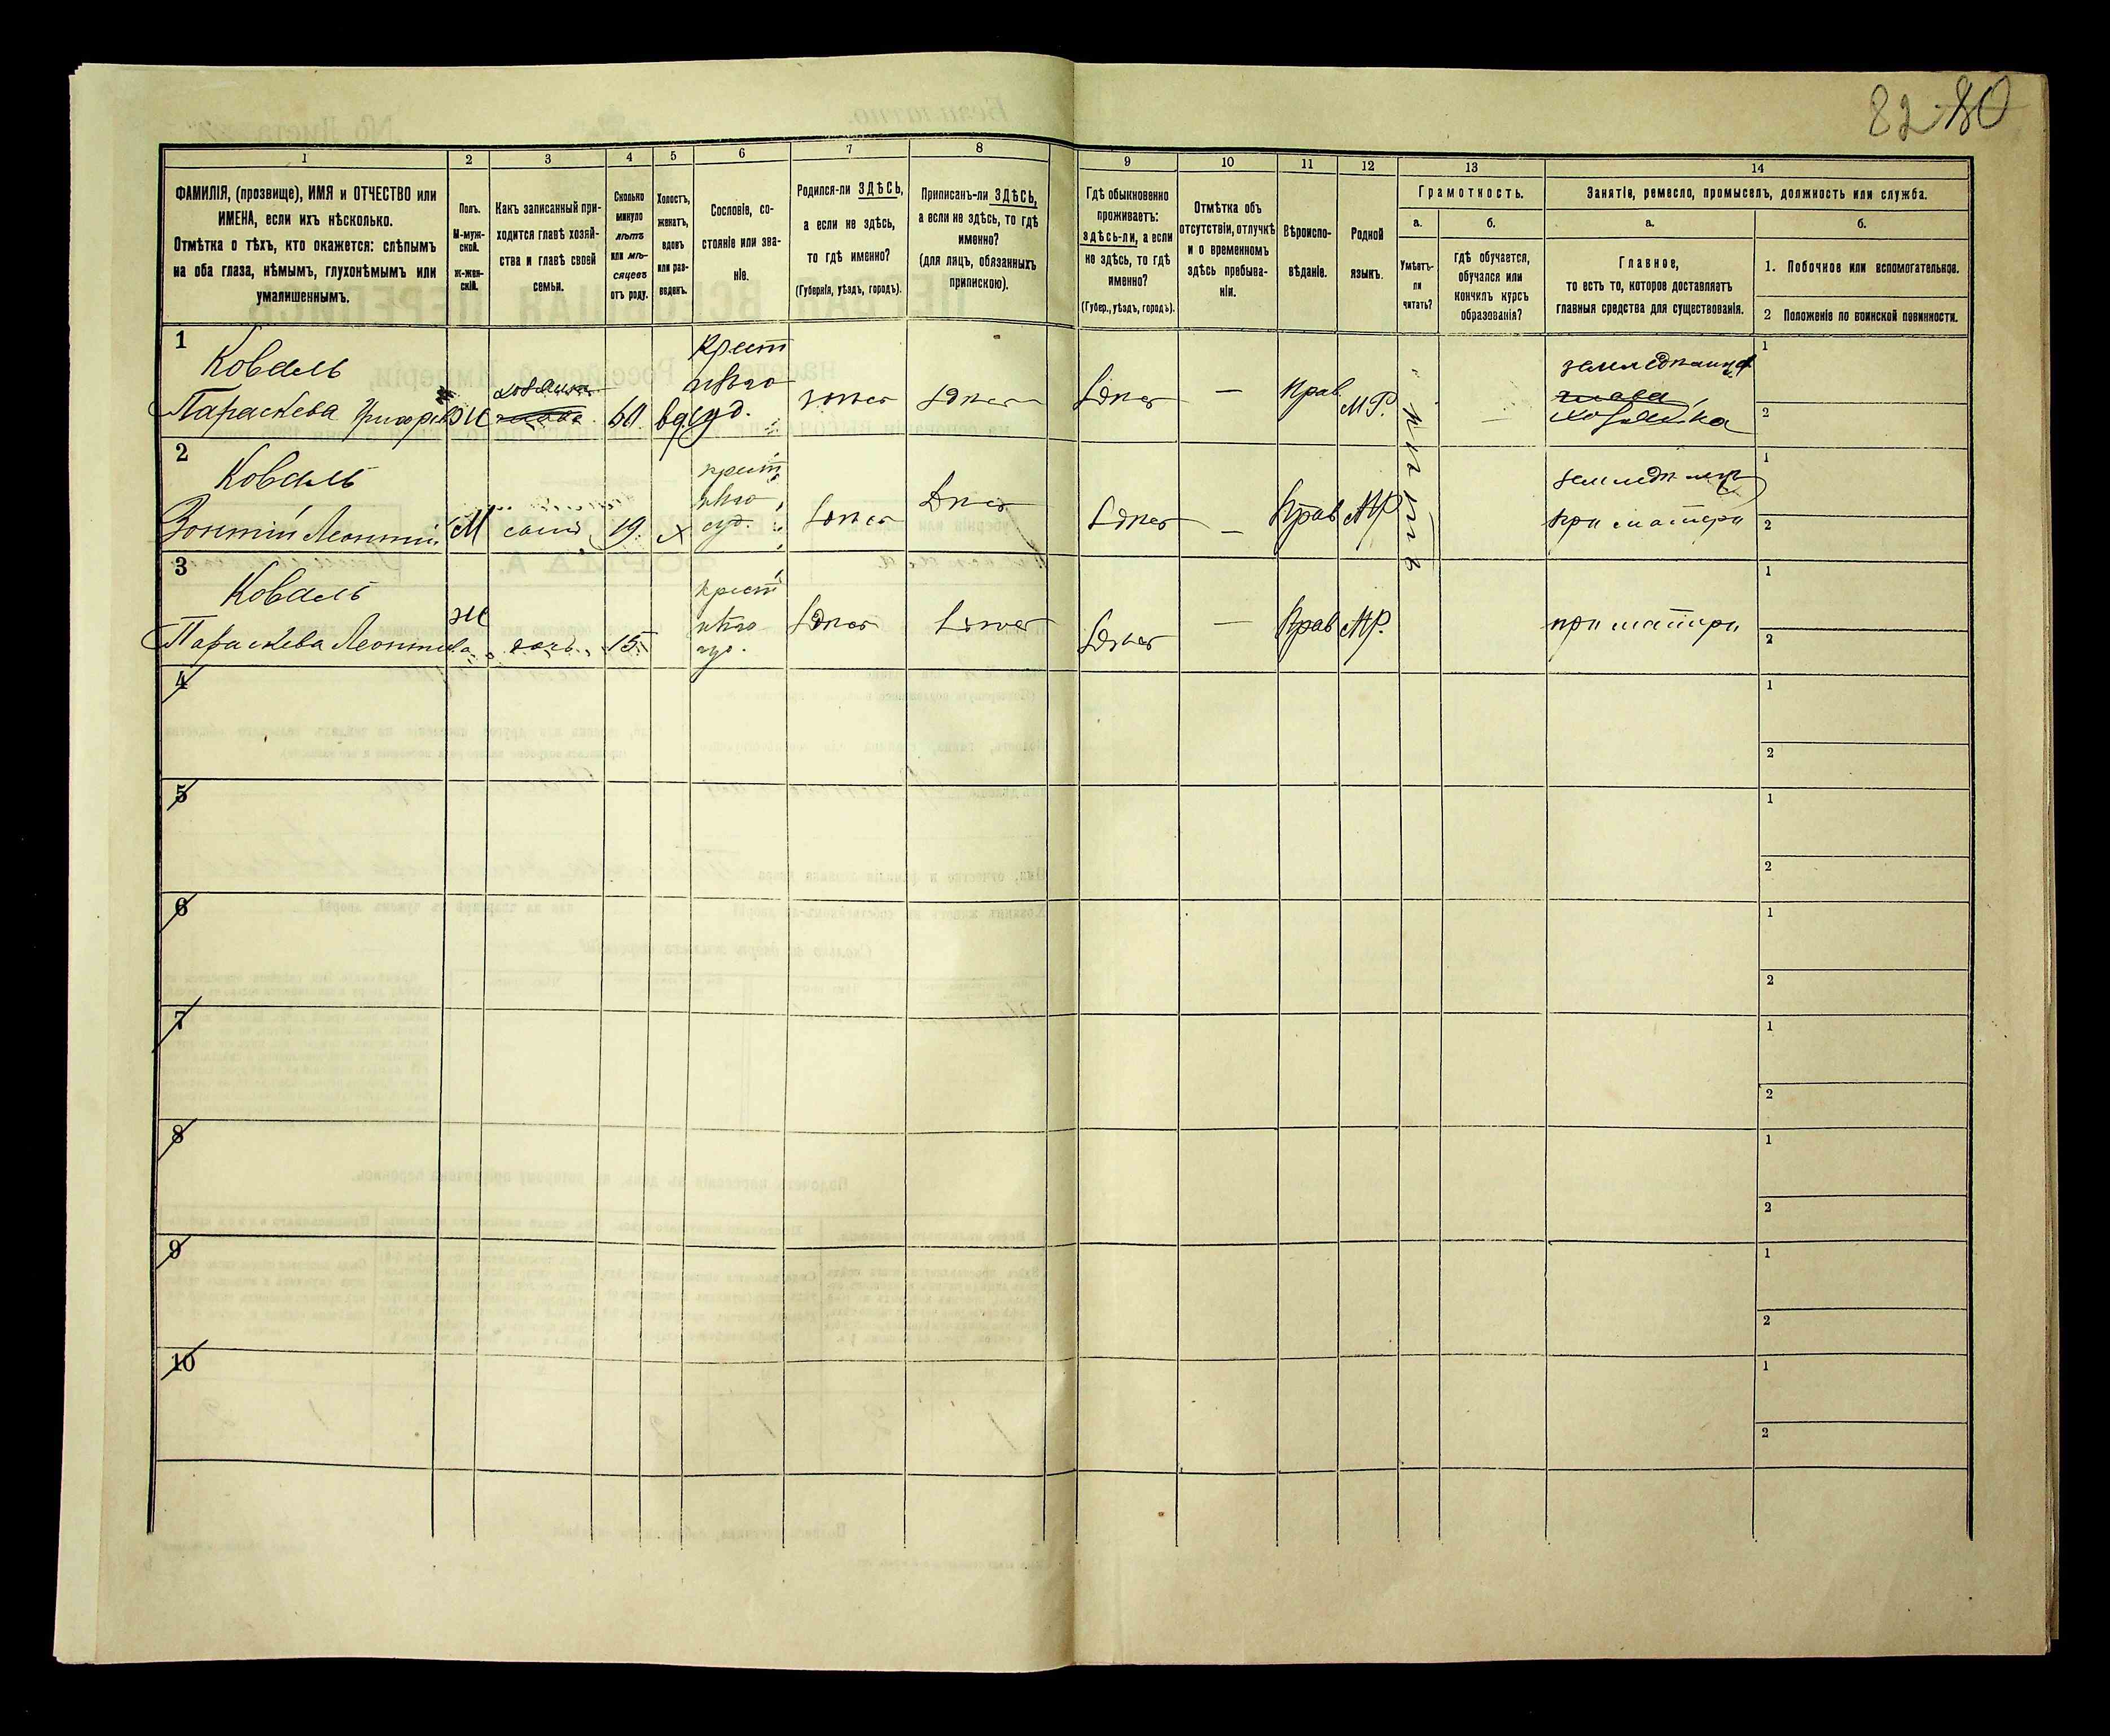 82 80
1
2
3
4
5
6
7
8
9
10
11
12
13
14
ФАМИЛІЯ, (прозвище), ИМЯ и ОТЧЕСТВО или
ИМЕНА, если ихъ нѣсколько.
Отмѣтка о тѣхъ, кто окажется: слѣпымъ
на оба глаза, нѣмымъ, глухонѣмымъ или
умалишеннымъ.
Полъ.
М-муж-
ской.
ж-жен-
скій.
Какъ записанный при-
ходится главѣ хозяй-
ства и главѣ своей
семьи.
Сколько
минуло
лѣтъ
или мѣ-
сяцевъ
отъ роду.
Холостъ,
женатъ,
вдовъ
или раз-
веденъ.
Сословіе, со-
стояніе или зва-
ніе.
Родился-ли ЗДѢСЬ,
а если не здѣсь,
то гдѣ именно?
(Губернія, уѣздъ, городъ).
Приписанъ-ли ЗДѢСЬ,
а если не здѣсь, то гдѣ
именно?
(для лицъ, обязанныхъ
припискою).
Гдѣ обыкновенно
проживаетъ:
здѣсь-ли, а если
не здѣсь, то гдѣ
именно?
(Губер., уѣздъ, городъ).
Отмѣтка объ
отсутствіи, отлучкѣ
и о временномъ
здѣсь пребыва-
ніи.
Вѣроиспо-
вѣданіе.
Родной
языкъ.
Грамотность.
а.
Умѣетъ-
ли
читать?
б.
гдѣ обучается,
обучался или
кончилъ курсъ
образованія?
Занятіе, ремесло, промыселъ, должность или служба.
а.
Главное,
то есть то, которое доставляетъ
главныя средства для существованія.
б.
1. Побочное или вспомогательное.
2 Положеніе по воинской повинности.
1
Коваль
Параскева
Ж
хозяйка
60
вд.
крест
здѣсь
здѣсь
здѣсь
—
Прав
М.Р.
хозяйка
1
2
2
Коваль
Леонтій
М
сынъ
19.
х
крест
здѣсь
здѣсь
здѣсь
—
Прав
МР
при матери
1
2
3
Коваль
Параскева Леонтьева
Ж
дочь
15
крест
здѣсь
здѣсь
здѣсь
—
Прав
МР.
при матери
1
2
4
1
2
5
1
2
6
1
2
7
1
2
8
1
2
9
1
2
10
1
2